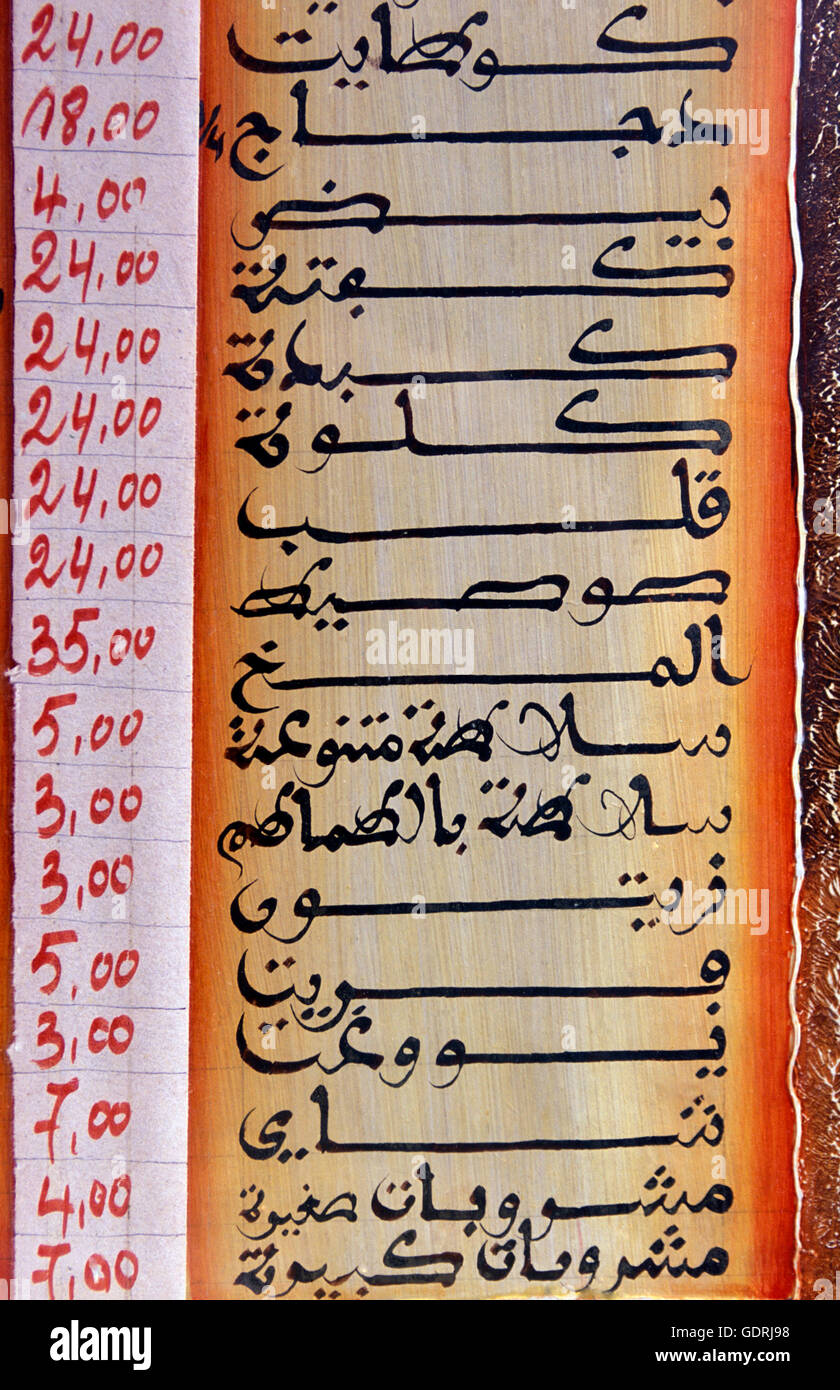 كوطليت 24,00
دجاج 1/4 18,00
بيض 4,00
كفتة 24,00
كبدة 24,00
كلوة 24,00
قلب 24,00
صوصيط 24,00
المخ 35,00
سلاطة متنوعة 5,00
سلاطة بالطماطم 3,00
زيتون 3,00
فريت 5,00
يووغت 3,00
شاي 7,00
مشروبات صغيرة 4,00
مشروبات كبيرة 7,00
alamy stock photo
alamy
Image ID: GDRJ98
www.alamy.com